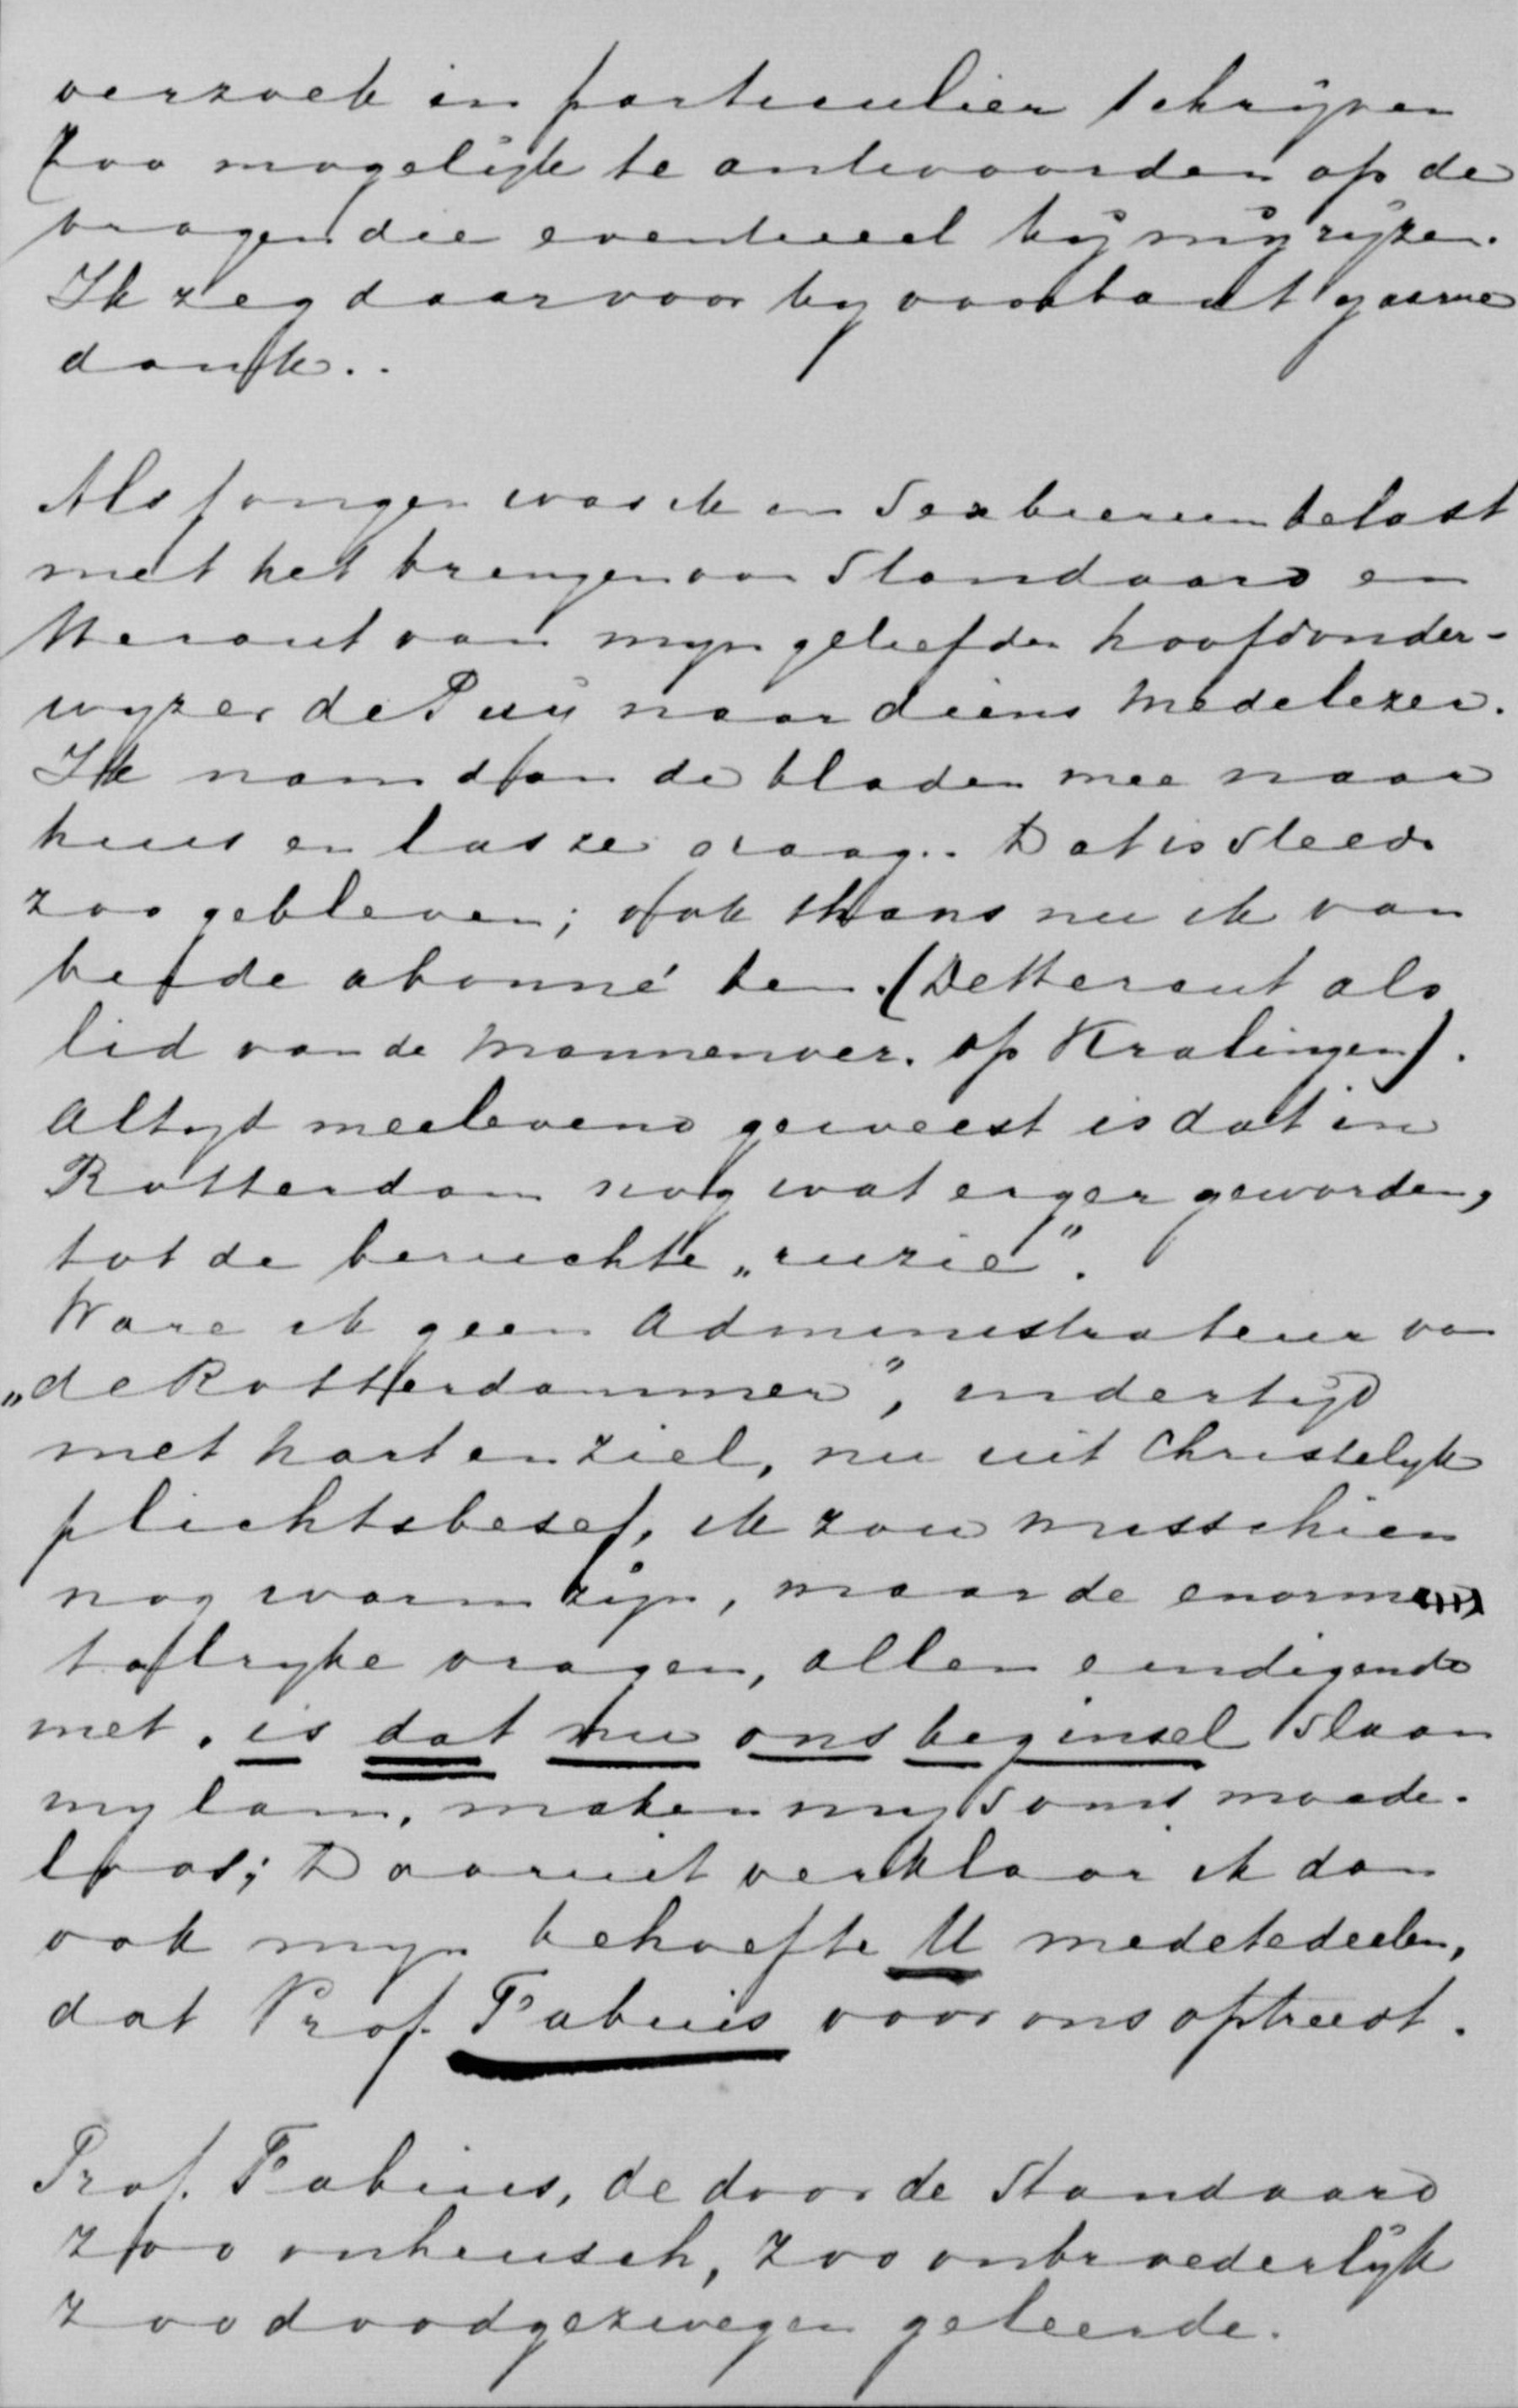 verzoek in particulier schrijven
zoo mogelijk te antwoorden op de
vragen die eventueel bij mij rijzen.
Ik zeg daarvoor by voorbaat gaarne
dank..
Als jongen was ik in Sexbierum belast
met het brengen van Standaard en
Heraut van myn geliefden hoofdonder-
wyzer de Puy naar diens medelezer.
Ik nam dan de bladen mee naar
huis en las ze graag. Dat is steeds
zoo gebleven; ook thans nu ik van
beide abonné ben. (De Heraut als
lid van de Mannenver. op Kralingen).
Altyd meelevend geweest is dat in
Rotterdam nog wat erger geworden,
tot de beruchte „ruzie".
Ware ik geen Administrateur van
„de Rotterdammer", indertijd
met hart en ziel, nu uit Christelyk
plichtsbesef, ik zou misschien
nog warm zijn, maar de enorme
talryke vragen, allen eindigende
met. is dat nu ons beginsel slaan
my lam, maken my soms moede-
loos; Daaruit verklaar ik dan
ook myn behoefte U medetedeelen,
dat Prof. Fabius voor ons optreedt.
Prof. Fabius, de door de Standaard
zoo onheusch, zoo onbroederlijk
zoo doodgezwegen geleerde.